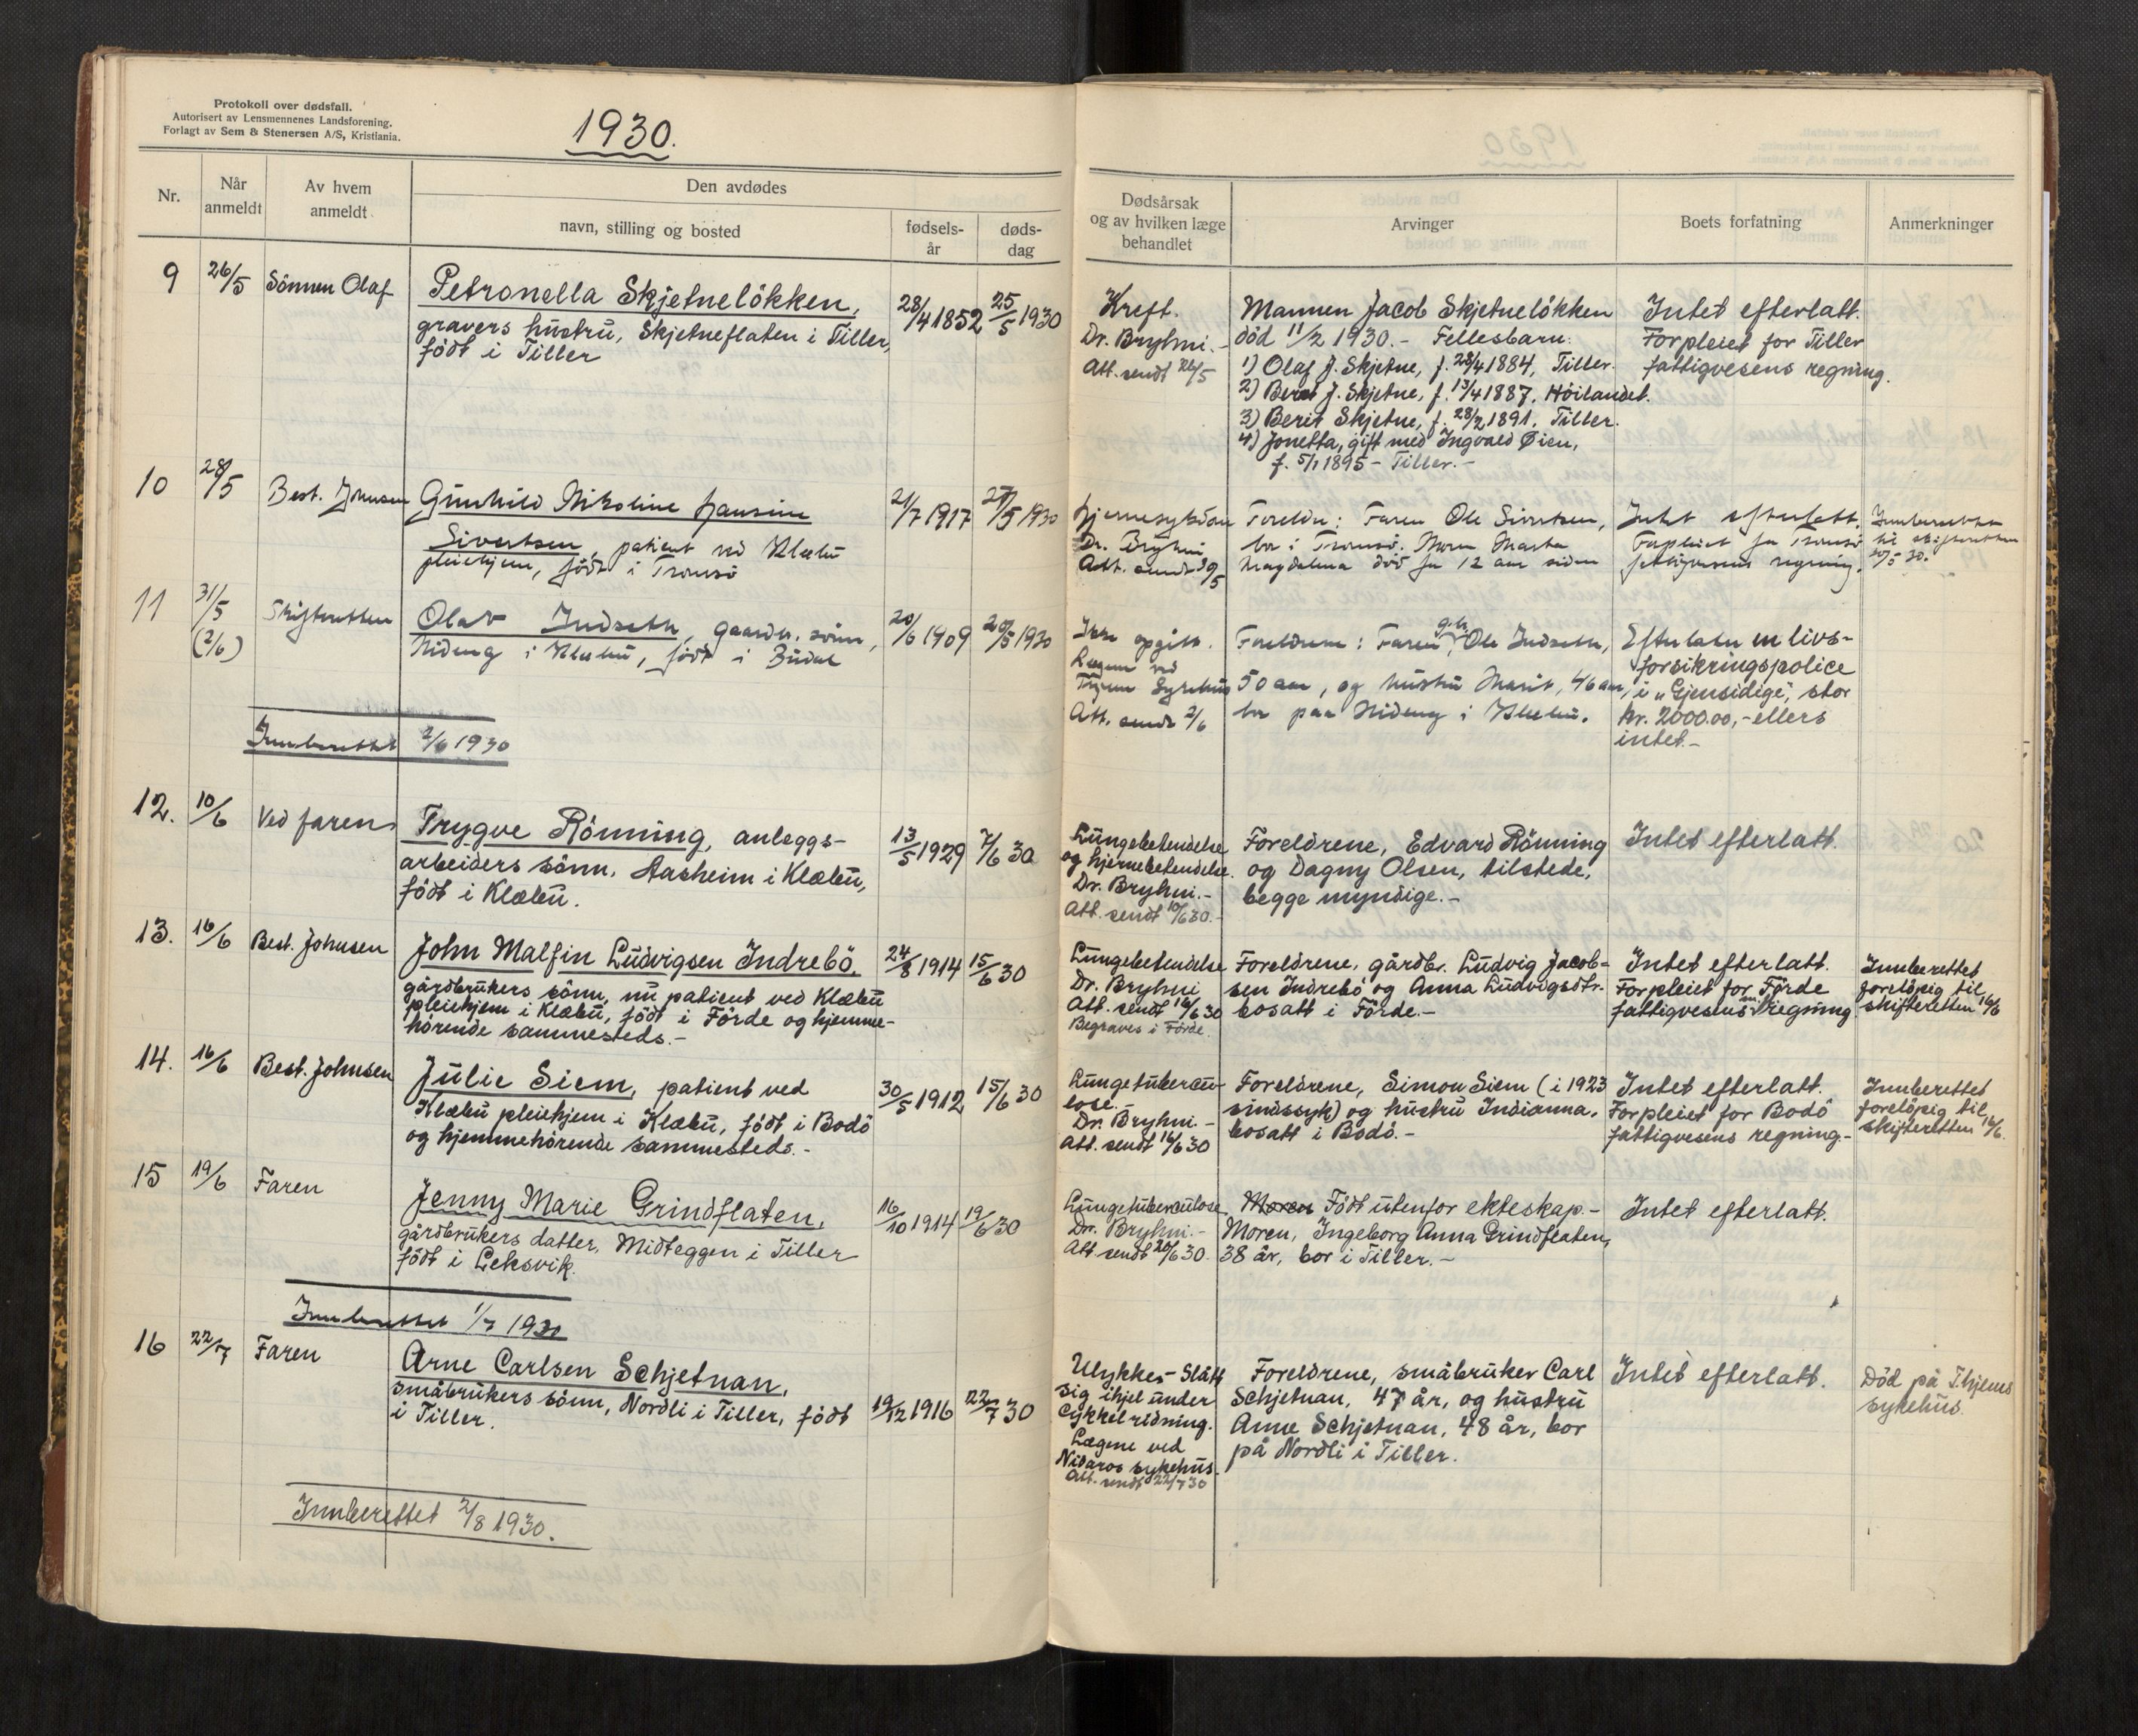 Protokoll over dødsfall.
Autorisert av Lensmennenes Landsforening.
Forlagt av Sem & Stenersen A/S, Kristiania.
1930.
Nr.
Når anmeldt
Av hvem anmeldt
Den avdødes
navn, stilling og bosted
fødsels-
år
døds-
dag
Dødsårsak
og av hvilken læge
behandlet
Arvinger
Boets forfatning
Anmerkninger
9 26/5 Sönnen Olaf
Petronella Skjetnelökken,
gravers hustru, Skjetneflaten i Tiller,
födt i Tiller
28/4 1852 25/5 1930
Kreft.
Dr. Bryhni.-
Att. sendt 26/5
Mannen Jacob Skjetnelökken
död 11/2 1930.- Fellesbarn:
1) Olaf J. Skjetne, f. 28/4 1884, Tiller.
2) Beret J. Skjetne, f. 13/4 1887, Höilandet.
3) Berit Skjetne, f. 28/2 1891, Tiller.
4) Jonetta, gift med Ingvald Øien,
f. 5/1 1895 - Tiller.-
Intet efterlatt.
Forpleiet for Tiller
fattigvesens regning.
10 28/5 Best. Johnsen
Gunhild Nikoline Hansine
Sivertsen, patient ved Klæbu
pleiehjem, födt i Tromsö
21/7 1917 27/5 1930
Hjernesykdom
Dr. Bryhni
Att. sendt 30/5
Foreldre: Faren Ole Sivertsen,
bor i Tromsö. Moren Marta
Magdalena död for 12 aar siden
Intet efterlatt.
Forpleiet for Tromsö
fattigvesens regning.
Innberettet
til skifteretten
30/5 30.
11 31/5 (2/6) Skifteretten
Olav Indseth, gaardbr. sönn,
Nideng i Klæbu, födt i Budal
20/6 1909 20/5 1930
Ikke opgitt.
Lægene ved
Trhjem Sykehus
Att. sendt 2/6
Foreldrene: Faren gbr. Ole Indseth,
50 aar, og hustru Marit, 46 aar,
bor paa Nideng i Klæbu.
Efterlater en livs-
forsikringspolice
i "Gjensidige", stor
kr. 2000.00,- ellers
intet.-
Innberettet 2/6 1930
12. 10/6 Ved faren
Trygve Rönning, anleggs-
arbeiders sönn, Aasheim i Klæbu,
födt i Klæbu.
13/5 1929 7/6 30
Lungebetendelse
og hjernebetendelse.
Dr. Bryhni.-
Att. sendt 10/6 30.-
Foreldrene, Edvard Rönning
og Dagny Olsen, tilstede,
begge myndige.-
Intet efterlatt.
13. 16/6 Best. Johnsen
John Malfin Ludvigsen Indrebö,
gårdbrukers sönn, nu patient ved Klæbu
pleiehjem i Klæbu, födt i Förde og hjemme-
hörende sammesteds.-
24/8 1914 15/6 30
Lungebetendelse
Dr. Bryhni
Att. sendt 16/6 30
Begraves i Förde.
Foreldrene, gårdbr. Ludvig Jacob-
sen Indrebö og Anna Ludvigsdtr.
bosatt i Förde.-
Intet efterlatt.
Forpleiet for Förde
fattigvesens regning
Innberettet
foreløpig til
skifteretten 16/6
14. 16/6 Best. Johnsen
Julie Siem, patient ved
Klæbu pleiehjem i Klæbu, födt i Bodö
og hjemmehörende sammesteds.-
30/5 1912 15/6 30
Lungetubercu-
lose.-
Dr. Bryhni.-
Att. sendt 16/6 30
Foreldrene, Simon Siem (i 1923
sindssyk) og hustru Indianna,
bosatt i Bodö.-
Intet efterlatt.
Forpleiet for Bodö
fattigvesens regning.-
Innberettet
forelöpig til
skifteretten 16/6.
15 19/6 Faren
Jenny Marie Grindflaten,
gårdbrukers datter, Midteggen i Tiller
födt i Leksvik.
16/10 1914 19/6 30
Lungetuberculose.
Dr. Bryhni.-
Att. sendt 20/6 30.
Moren Födt utenfor ekteskap.-
Moren, Ingeborg Anna Grindflaten,
38 år, bor i Tiller.-
Intet efterlatt.
Innberettet 1/7 1930
16 22/7 Faren
Arne Carlsen Schjetnan,
småbrukers sönn, Nordli i Tiller, födt
i Tiller.
19/12 1916 22/7 30
Ulykke - Slått
sig ihjel under
cykkelridning.
Lægene ved
Nidaros sykehus.
Att. sendt 22/7 30
Foreldrene, småbruker Carl
Schjetnan, 47 år, og hustru
Anne Schjetnan, 48 år, bor
på Nordli i Tiller.
Intet efterlatt.
Död på T.hjems
sykehus.
Innberettet 2/8 1930.